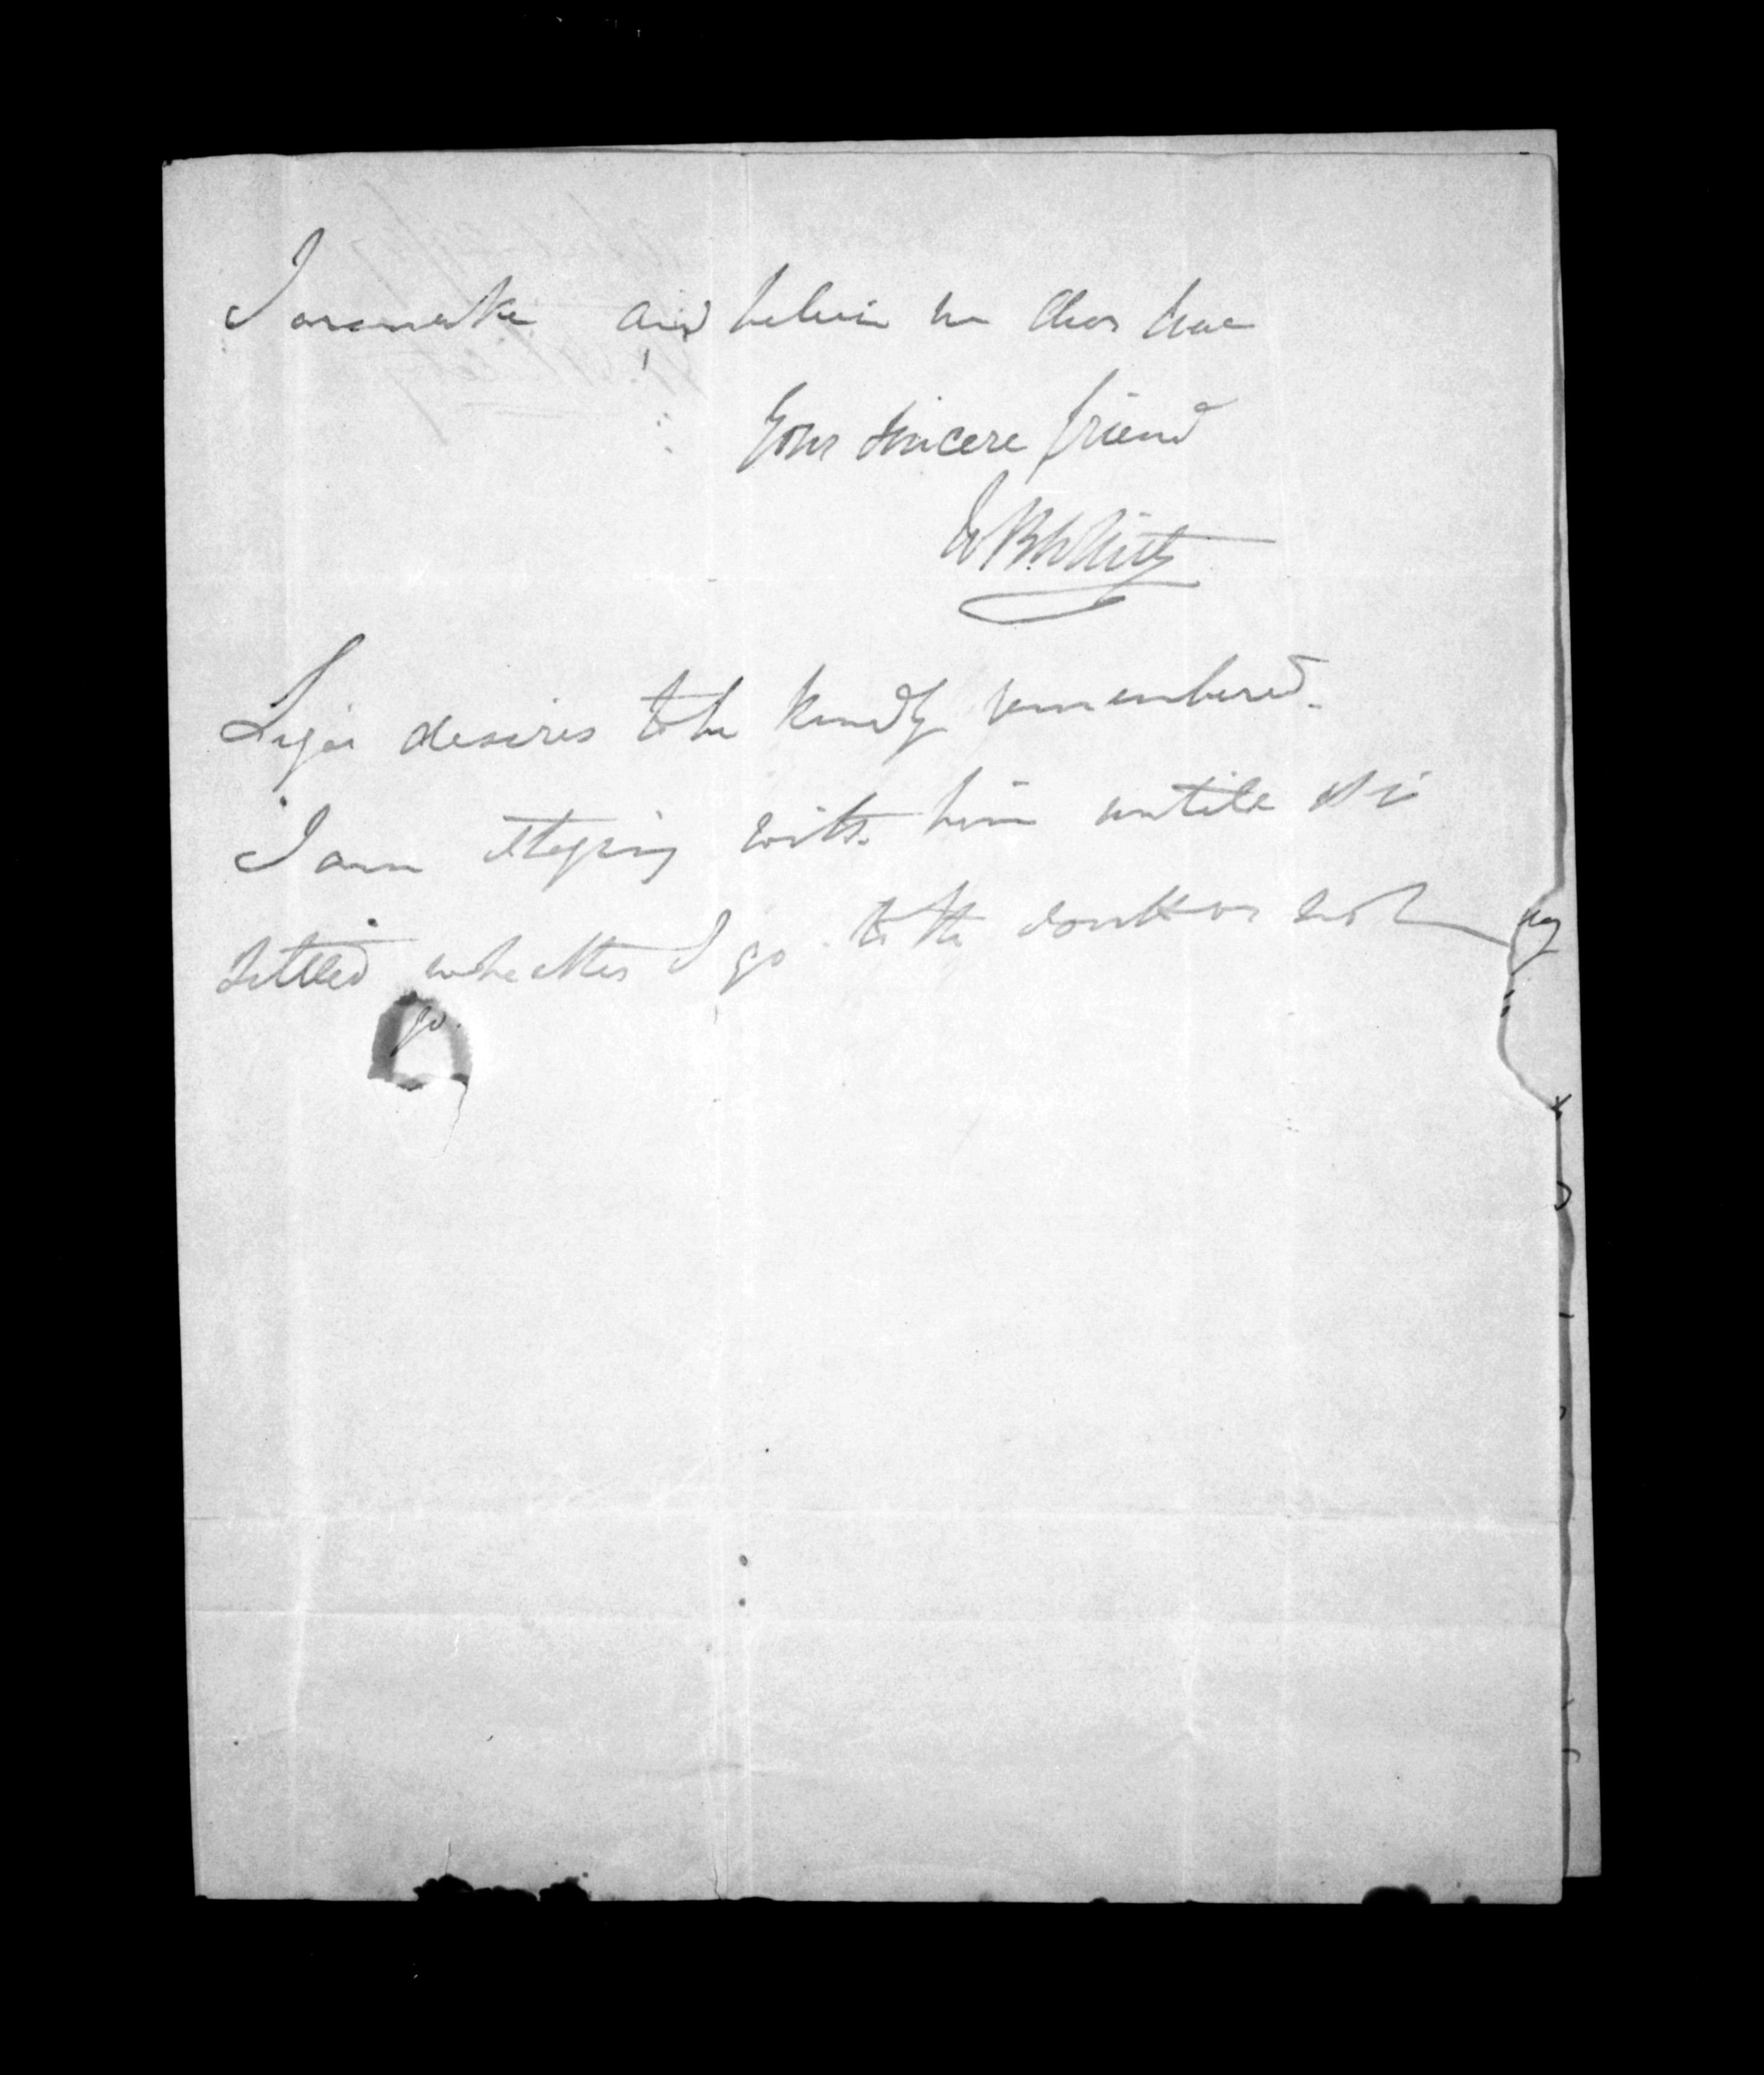 Taranake and believe me dear Mac
Your sincere friend
W B White
desires to be kindly remembered.
I am stoping with him untill it is
settled whether I go to the south or not